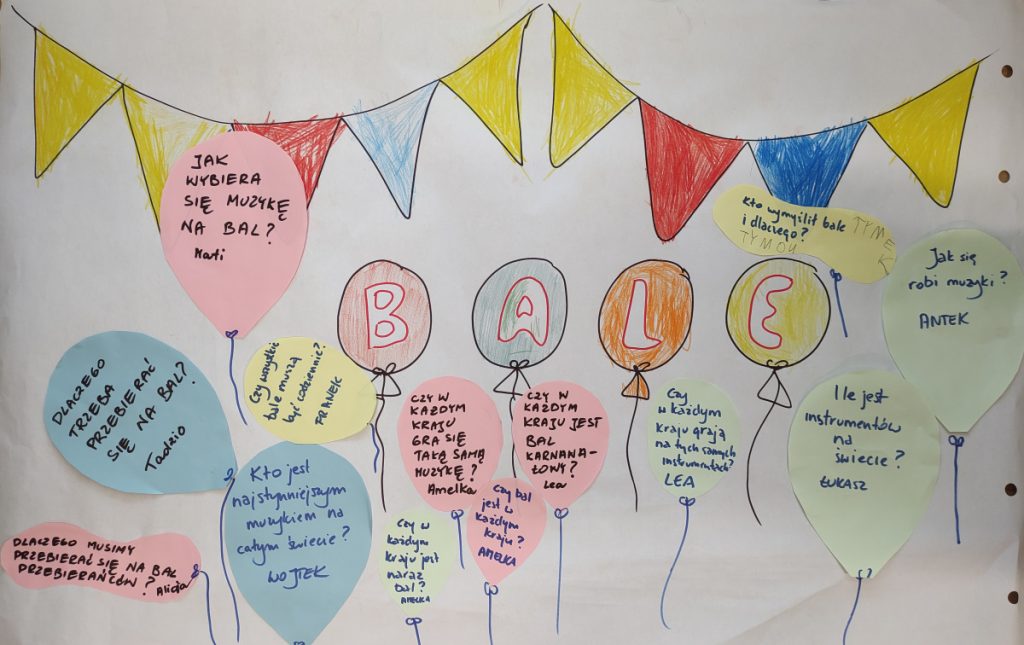 JAK
WYBIERA
SIĘ MUZYKĘ
NA BAL?
Mati
BALE
Kto wymyślił bale
i dlaczego?
TYMEK
TYMON
Jak się
robi muzyki?
ANTEK
DLACZEGO
TRZEBA
PRZEBIERAĆ
SIĘ NA BAL?
Tadzio
Czy wszystkie
bale muszą
być codziennie?
FRANEK
CZY W
KAŻDYM
KRAJU
GRA SIĘ
TAKĄ SAMĄ
MUZYKĘ?
Amelka
CZY W
KAŻDYM
KRAJU JEST
BAL
KARNAWA-
ŁOWY?
Lea
Czy
w każdym
kraju grają
na tych samych
instrumentach?
LEA
Ile jest
instrumentów
na
świecie?
ŁUKASZ
Kto jest
najsłynniejszym
muzykiem na
całym świecie?
WOJTEK
Czy bal
jest w
każdym
kraju?
AMELKA
Czy w
każdym
kraju jest
naraz
bal?
AMELKA
DLACZEGO MUSIMY
PRZEBIERAĆ SIĘ NA BAL
PRZEBIERAŃCÓW?
Alicja